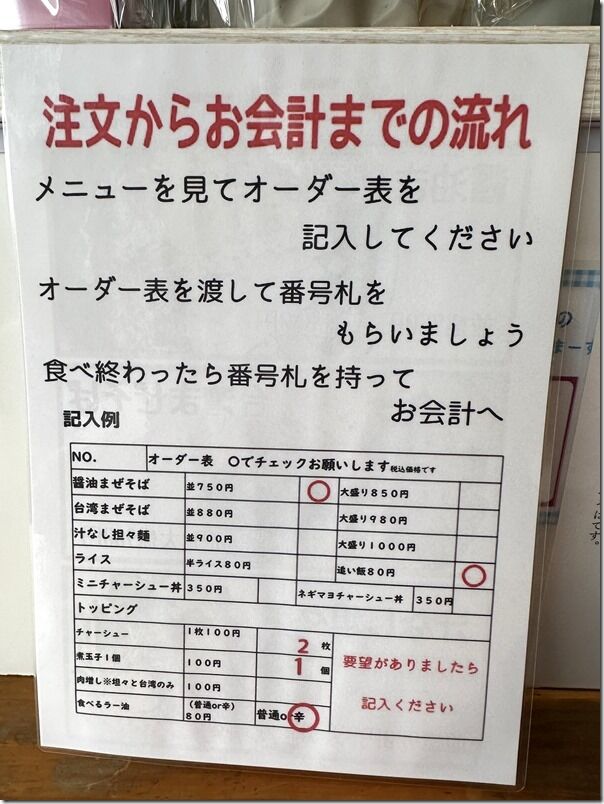 注文からお会計までの流れ
メニューを見てオーダー表を
記入してください
オーダー表を渡して番号札を
もらいましょう
食べ終わったら番号札を持って
お会計へ
記入例
NO. オーダー表 〇でチェックお願いします税込価格です
醤油まぜそば 並750円 〇 大盛り850円
台湾まぜそば 並880円 大盛り980円
汁なし担々麺 並900円 大盛り1000円
ライス 半ライス80円 追い飯80円 〇
ミニチャーシュー丼 350円 ネギマヨチャーシュー丼 350円
トッピング
チャーシュー 1枚100円 2枚
煮玉子1個 100円 1個
肉増し※坦々と台湾のみ 100円
食べるラー油 (普通or辛) 80円 普通or辛
要望がありましたら
記入ください